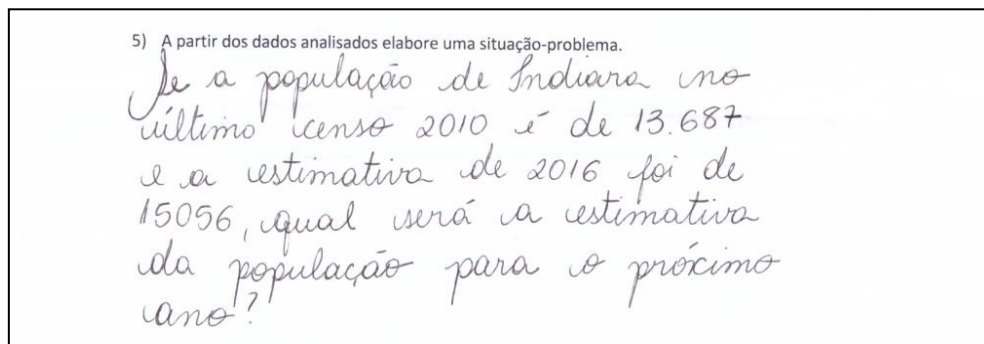 5) A partir dos dados analisados elabore uma situação-problema.
Se a população de Indiara no
último censo 2010 é de 13.687
e a estimativa de 2016 foi de
15056, qual será a estimativa
da população para o próximo
ano?